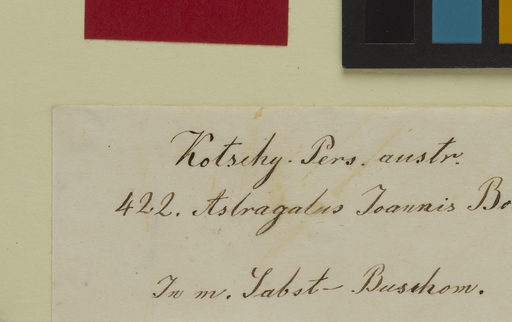 Kotschy. Pers. austr.
422. Astragalus Joannis Bo
In m. Sabst- Buschom.